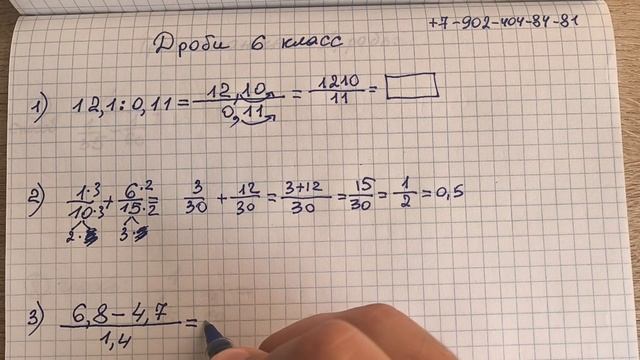 +7-902-404-84-81
Дроби 6 класс
1) 12,1 : 0,11 = 12,10/0,11 = 1210/11 =
2) 1·3/10·3 + 6·2/15·2 = 3/30 + 12/30 = 3+12/30 = 15/30 = 1/2 = 0,5
2·5 3·5
3) 6,8 – 4,7/1,4 =